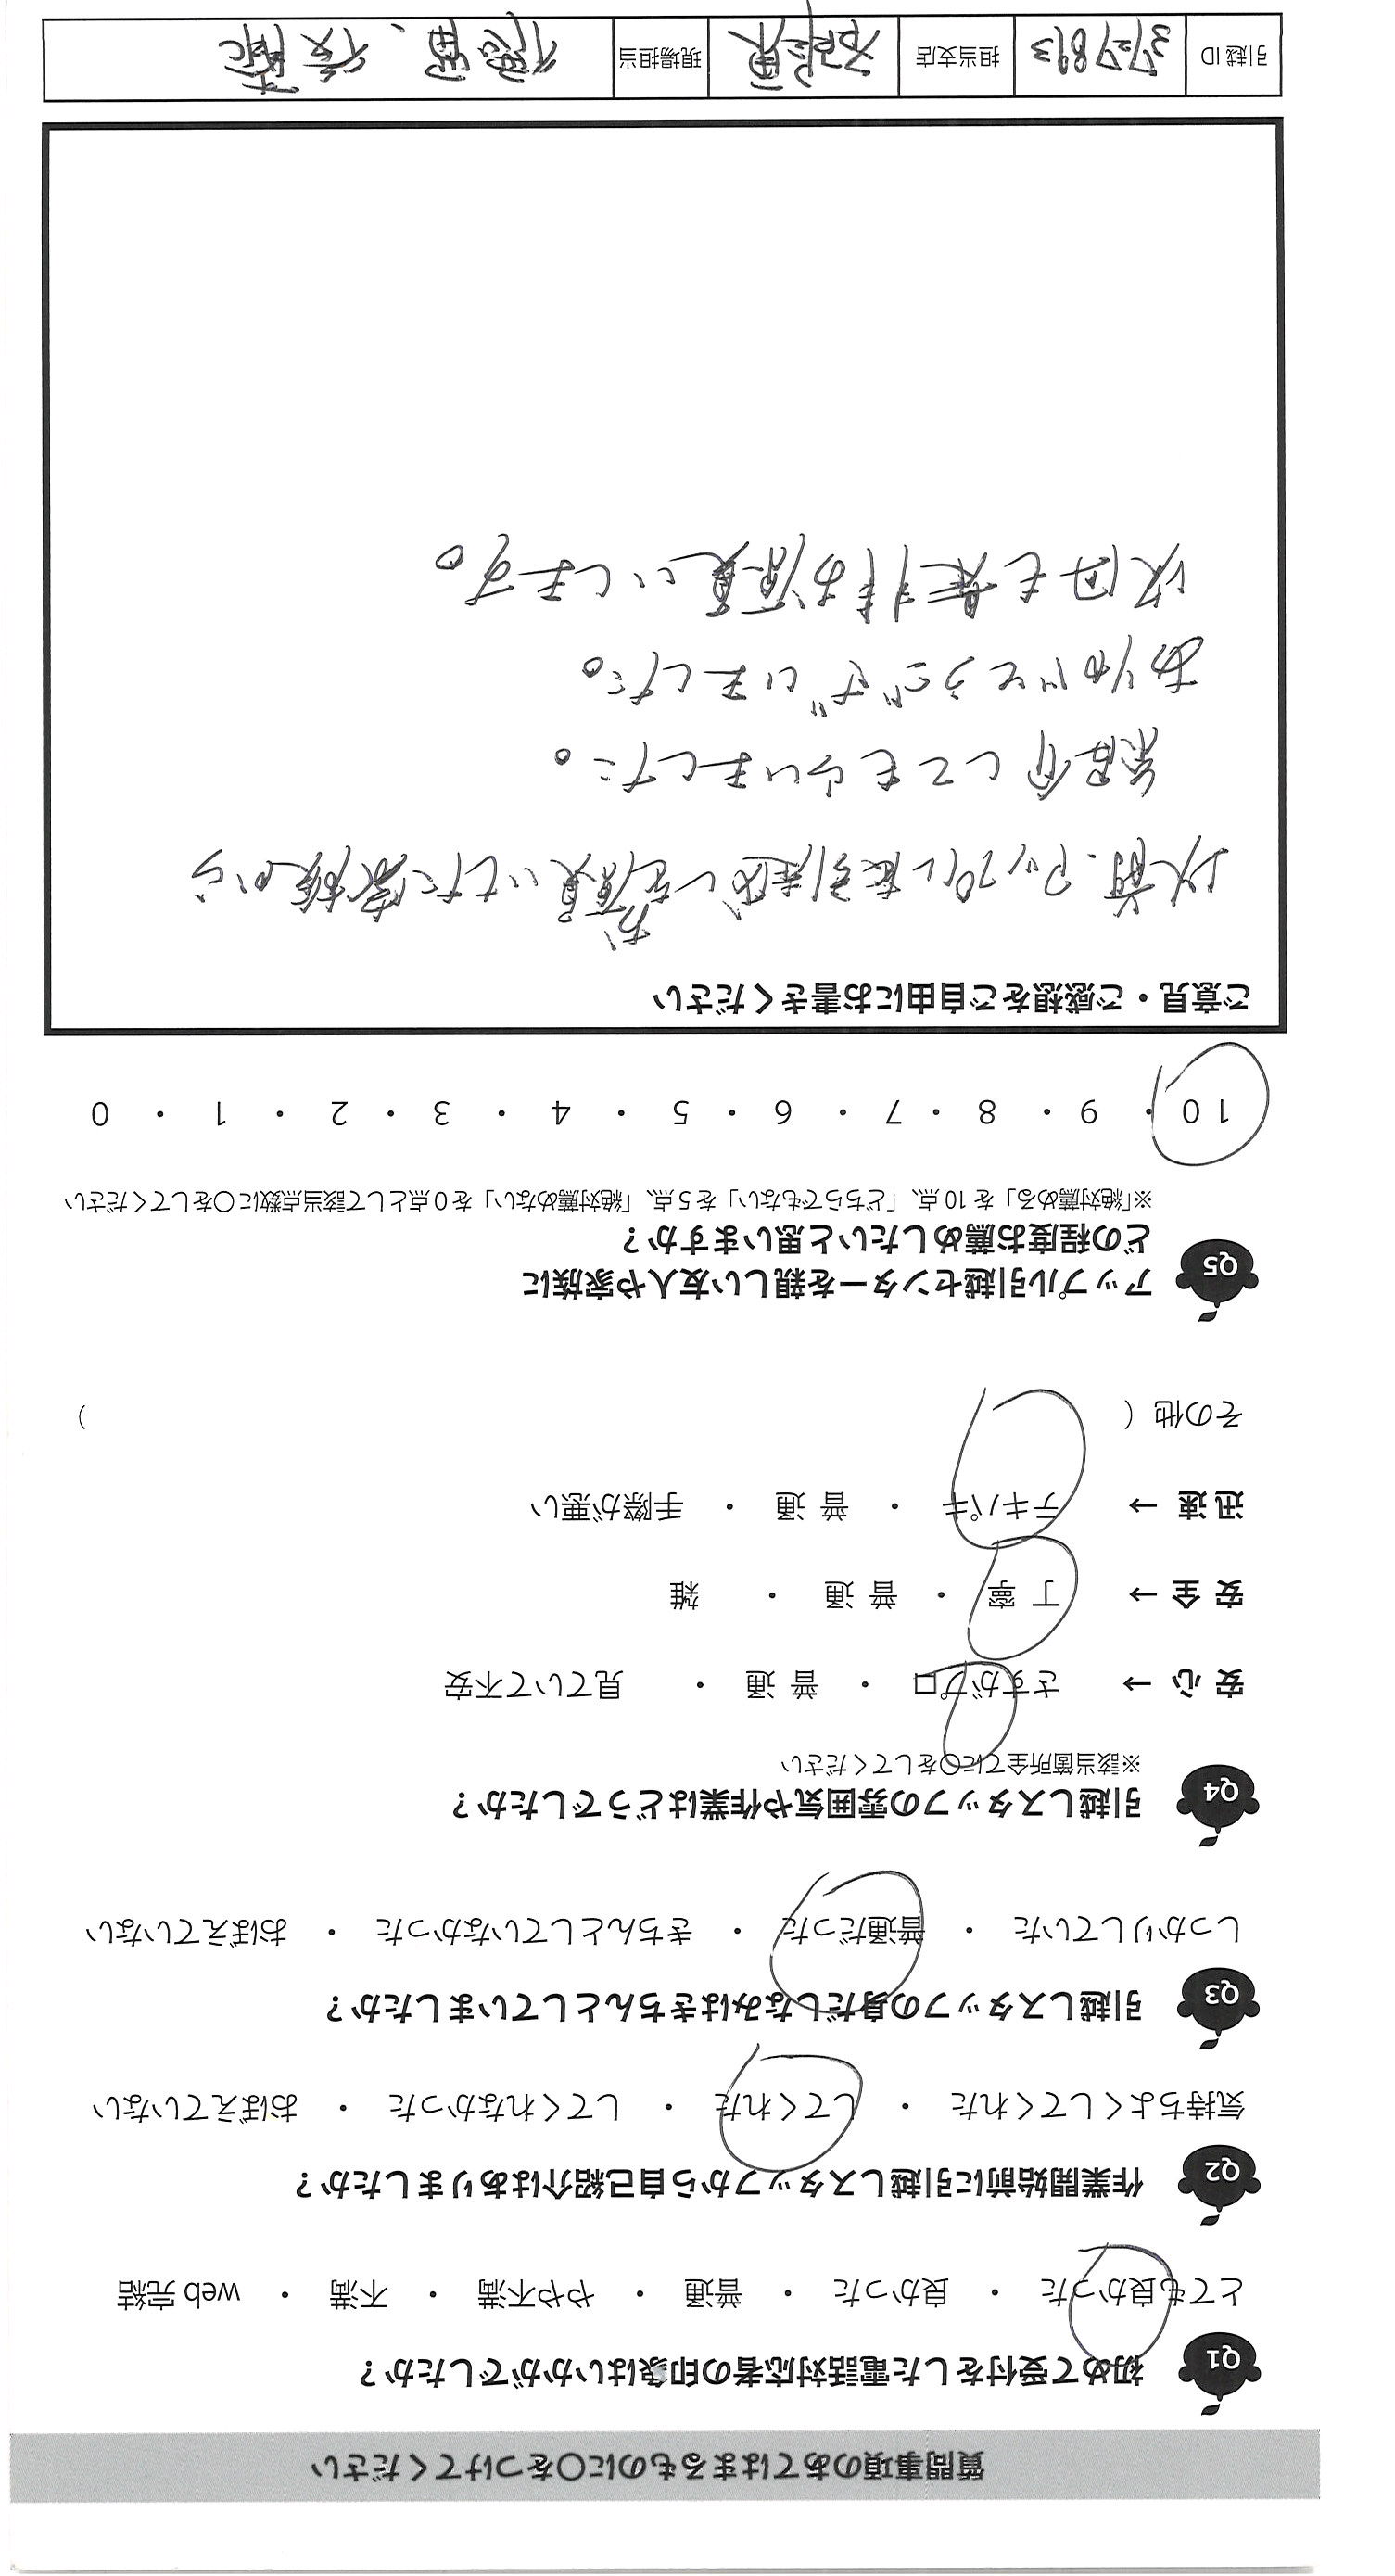 質問事項のあてはまるものに〇をつけてください
Q1 初めて受付をした電話対応者の印象はいかがでしたか？
とても良かった ・ 良かった ・ 普通 ・ やや不満 ・ 不満 ・ web 完結
Q2 作業開始前に引越しスタッフから自己紹介はありましたか？
気持ちよくしてくれた ・ してくれた ・ してくれなかった ・ おぼえていない
Q3 引越しスタッフの身だしなみはきちんとしていましたか？
しっかりしていた ・ 普通だった ・ きちんとしていなかった ・ おぼえていない
Q4 引越しスタッフの雰囲気や作業はどうでしたか？
※該当箇所全てに〇をしてください
安 心 → さすがプロ ・ 普 通 ・ 見ていて不安
安 全 → 丁 寧 ・ 普 通 ・ 雑
迅 速 → テキパキ ・ 普 通 ・ 手際が悪い
その他（ ）
Q5 アップル引越センターを親しい友人や家族に
どの程度お薦めしたいと思いますか？
※「絶対薦める」を 10 点、「どちらでもない」を 5 点、「絶対薦めない」を 0 点として該当点数に〇をしてください
10 ・ 9 ・ 8 ・ 7 ・ 6 ・ 5 ・ 4 ・ 3 ・ 2 ・ 1 ・ 0
ご意見・ご感想をご自由にお書きください
以前、アップルに引越しをお願いした家族から
紹介してもらいました。
ありがとうございました。
次回も是非お願いします。
引越 ID 3727893 担当支店 現場担当 徳留、後藤